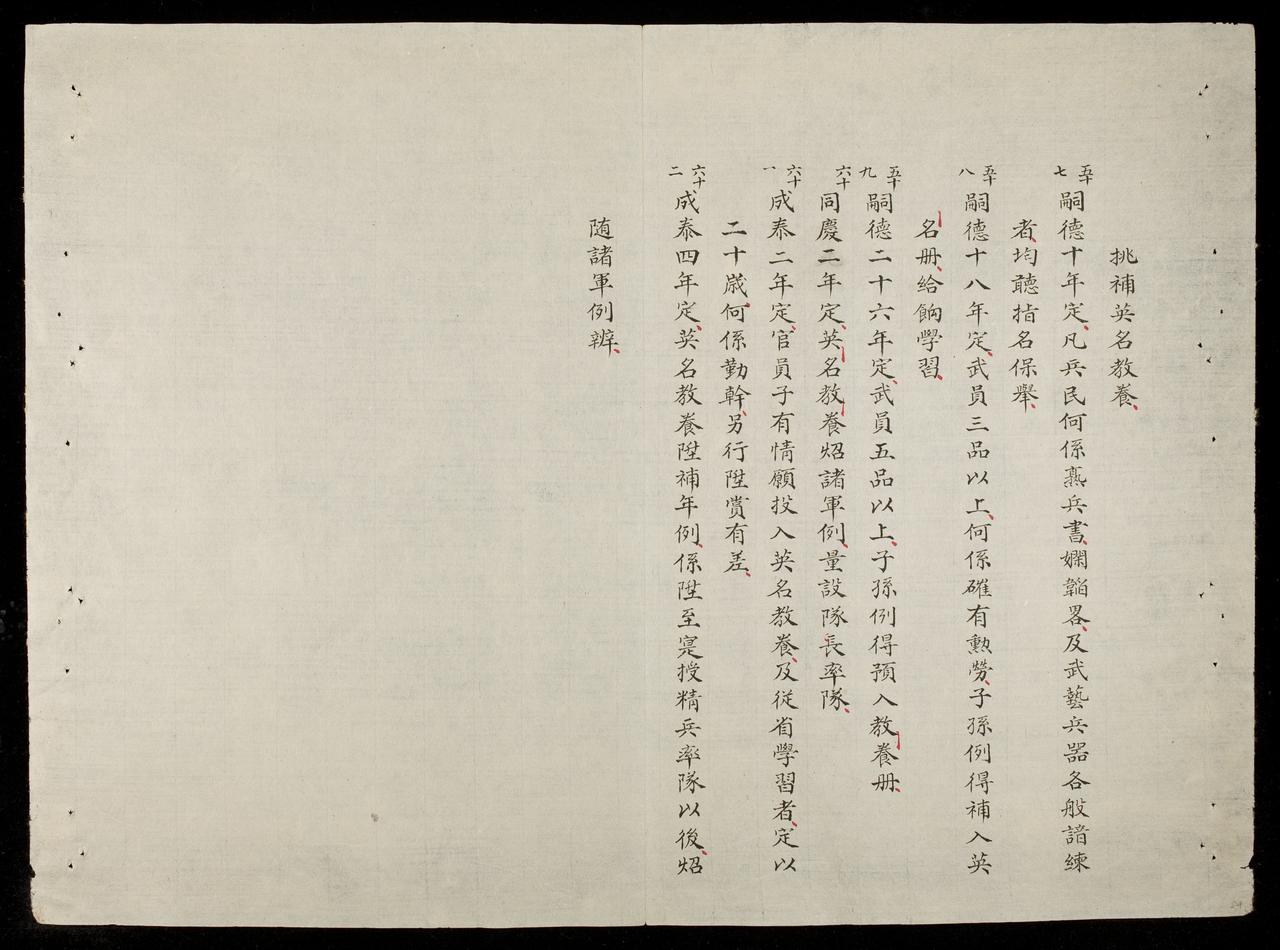 挑補英名教養、
五十七 嗣德十年定、凡兵民何係熟兵書、嫻韜畧、及武藝兵器各般諳練
者、均聽指名保舉、
五十八 嗣德十八年定、武員三品以上、何係確有勲勞、子孫例得補入英
名册、給餉學習、
五十九 嗣德二十六年定、武員五品以上、子孫例得預入教養册、
六十 同慶二年定、英名教養炤諸軍例、量設隊長率隊、
六十一 成泰二年定、官員子有情願投入英名教養、及從省學習者、定以
二十歲、何係勤幹、另行陞賞有差、
六十二 成泰四年定、英名教養陞補年例、係陞至寔授精兵率隊以後、炤
随諸軍例辦、